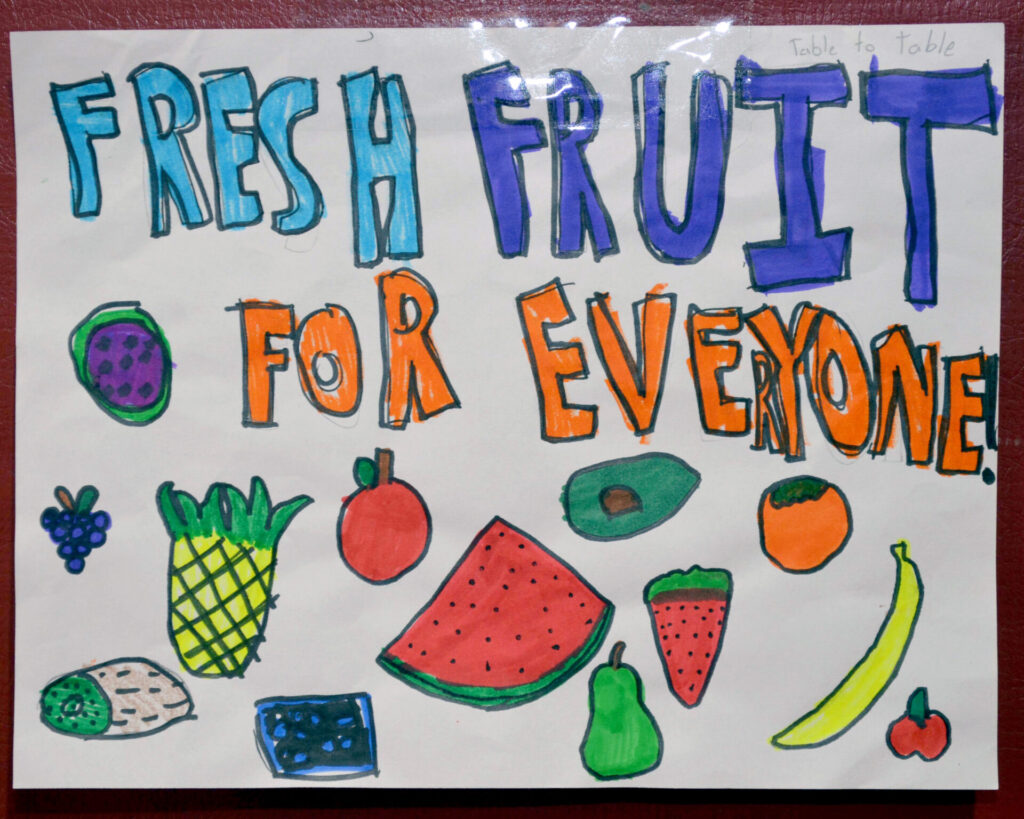 Table to Table
FRESH FRUIT
FOR EVERYONE!